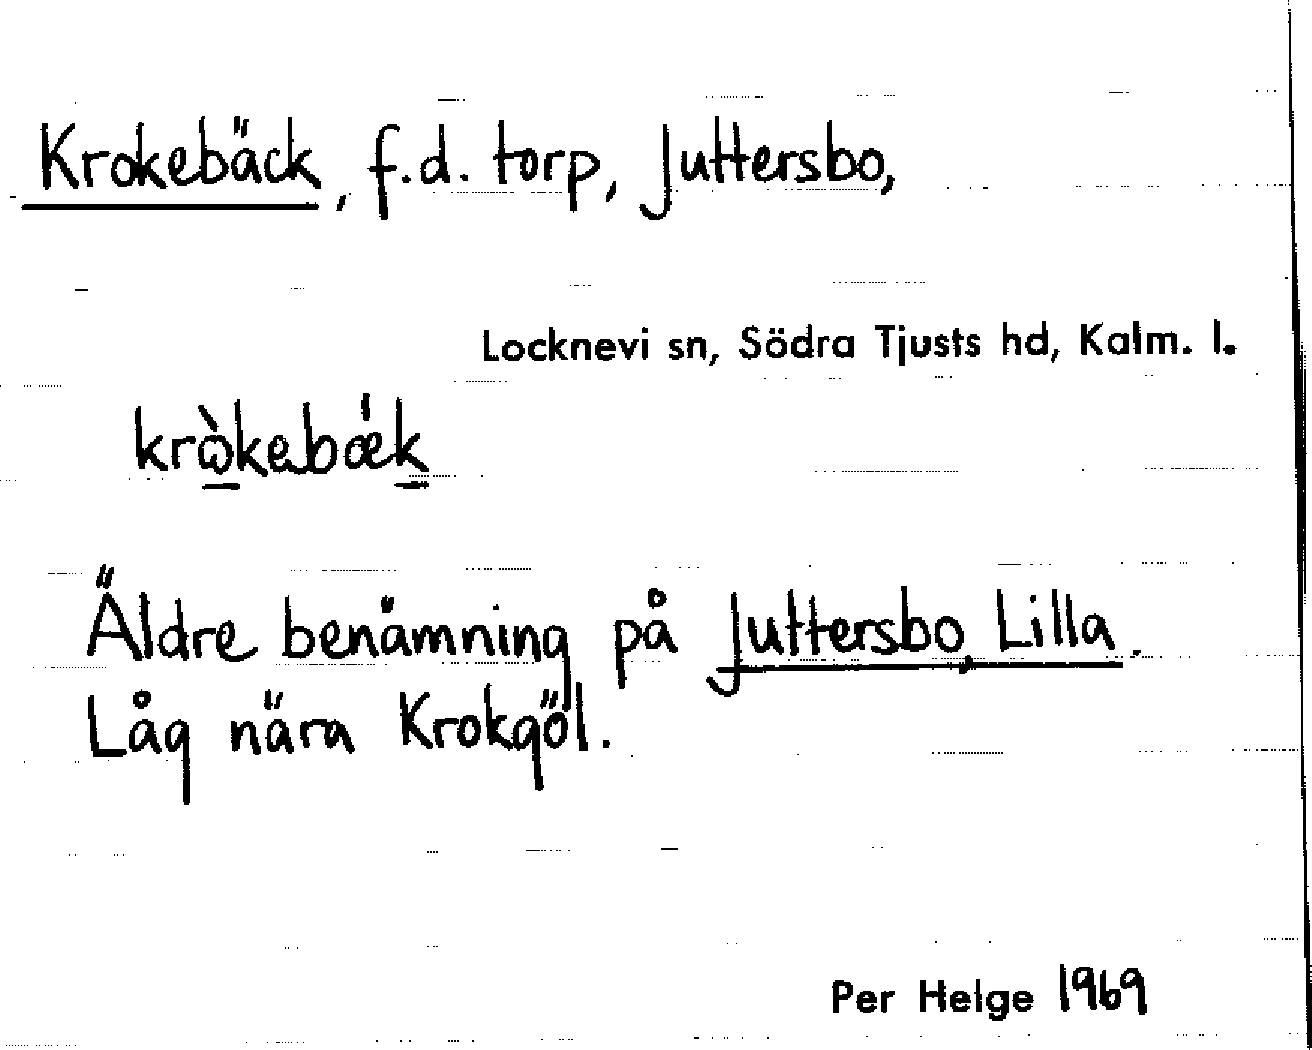 Krokebäck, f.d. torp, Juttersbo,
Locknevi sn, Södra Tjusts hd, Kalm. l.
krὼkebǽk
Äldre benämning på Juttersbo, Lilla.
Låg nära Krokgöl.
Per Helge 1969